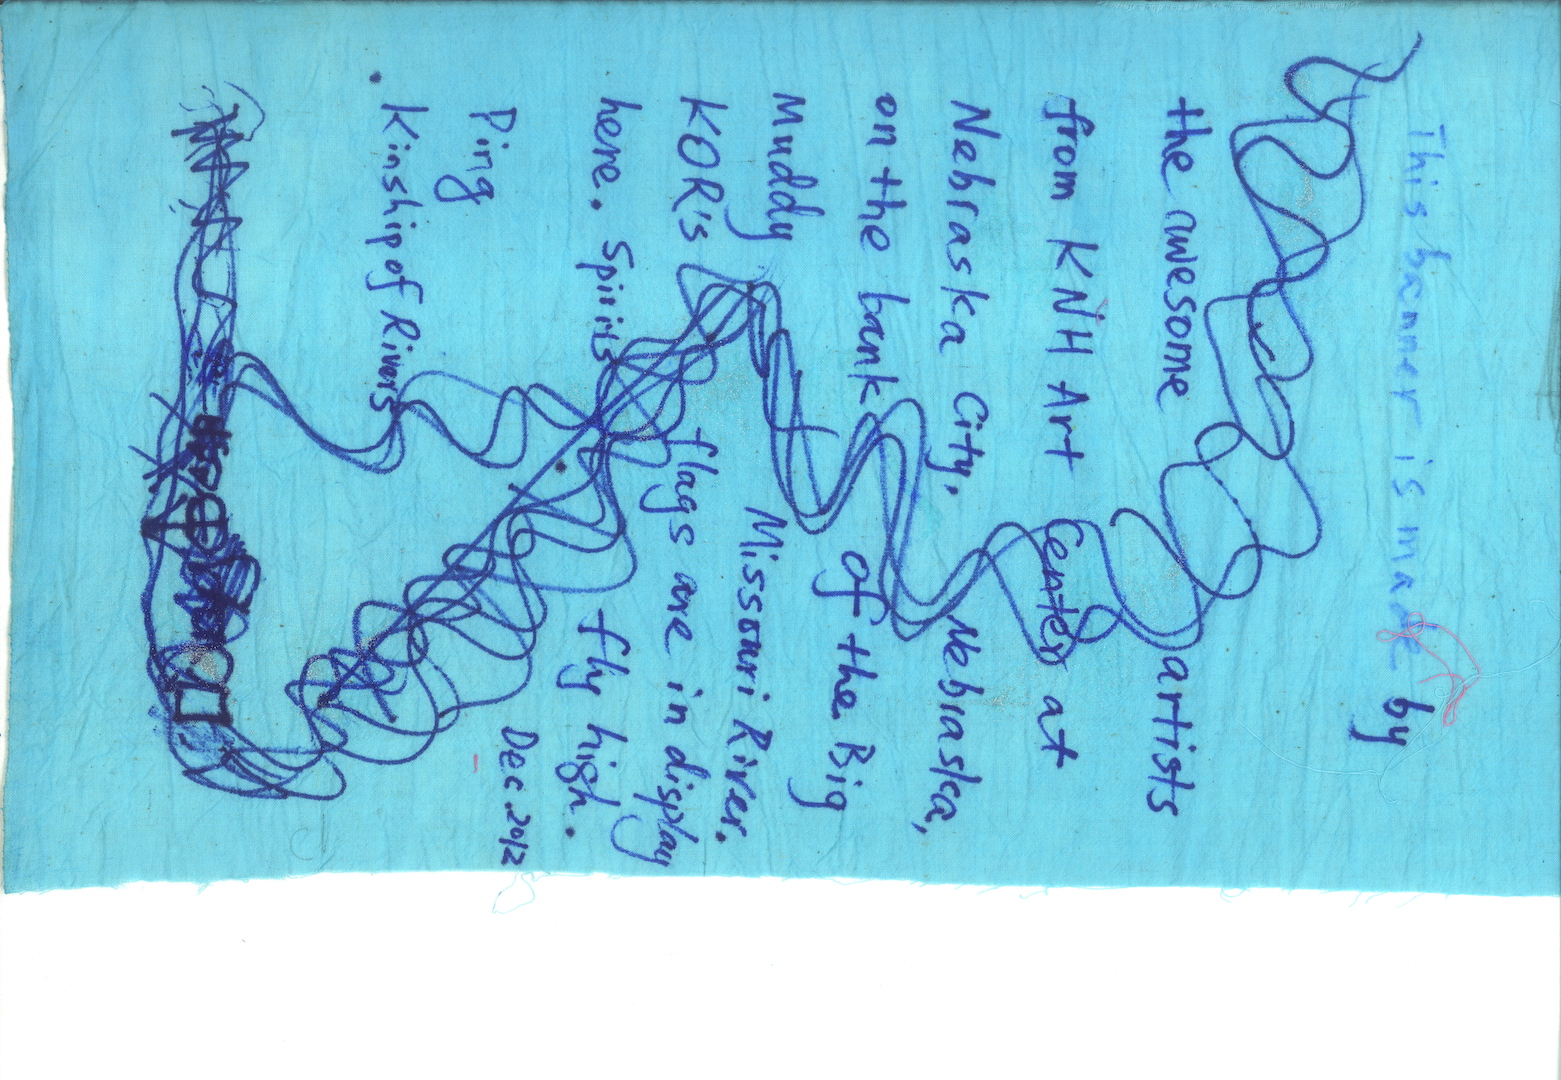 This banner is made by
the awesome artists
from KNH Art Center at
Nebraska City, Nebraska,
on the banks of the Big
Muddy Missouri River.
KOR's flags are in display
here. Spirits fly high.
Ping Dec. 2012
Kinship of Rivers